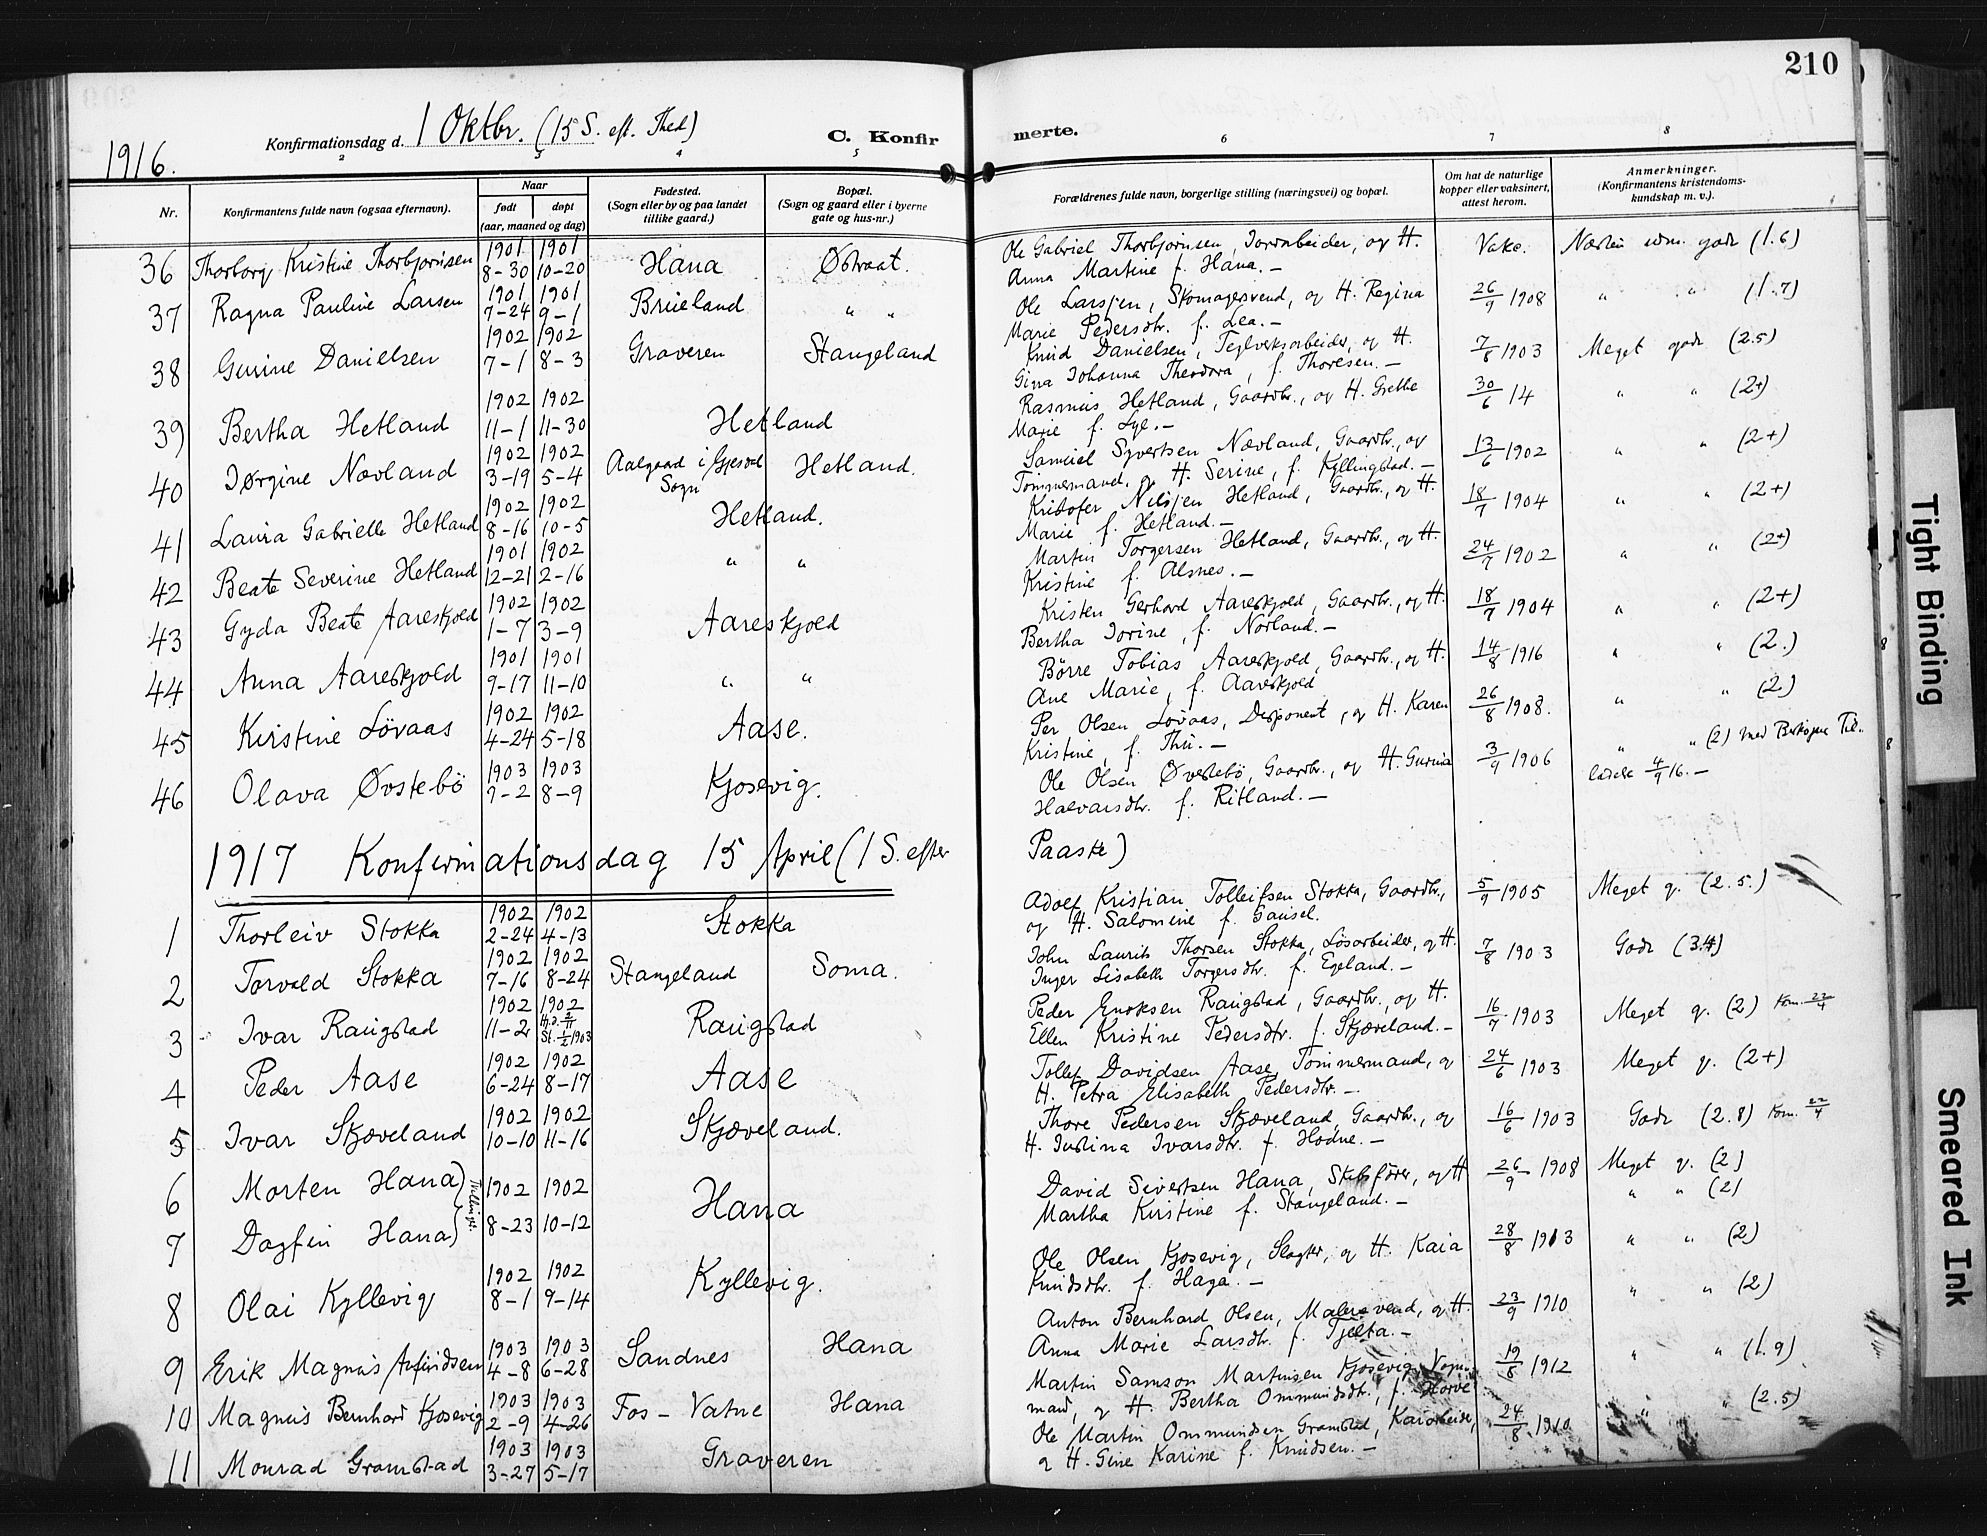 210
1916.
Konfirmationsdag d. 1 Oktbr. (15 S. eft. Thed)
C. Konfirmerte.
2 3 4 5 6 7 8
Nr.
Konfirmantens fulde navn (ogsaa efternavn).
Naar
født
døpt
(aar, maaned og dag)
Fødested.
(Sogn eller by og paa landet
tillike gaard.)
Bopæl.
(Sogn og gaard eller i byerne
gate og hus-nr.)
Forældrenes fulde navn, borgerlige stilling (næringsvei) og bopæl.
Om hat de naturlige
kopper eller vaksinert,
attest herom.
Anmerkninger.
(Konfirmantens kristendoms-
kundskap m. v.).
36 Thorborg Kristine Thorbjørnsen 1901 8-30 1901 10-20 Hana Østraat. Ole Gabriel Thorbjørnsen, Jordarbeider, og H.
Anna Martine f. Hana. — Vakc. Næsten udm. godt (1.6)
37 Ragna Pauline Larsen 1901 7-24 1901 9-1 Brueland " " Ole Larssen, Skomagersvend, og H. Regina
Marie Pedersdtr. f. Lea. — 26/9 1908 " " (1.7)
38 Gurine Danielsen 1902 7-1 1902 8-3 Graveren Stangeland Knud Danielsen, Teglverksarbeider, og H.
Gina Johanna Theodora, f. Thoresen. — 7/8 1903 Meget godt (2.5)
39 Bertha Hetland 1902 11-1 1902 11-30 Hetland Rasmus Hetland, Gaardbr., og H. Grethe
Marie f. Lye. — 30/6 14 " " (2+)
40 Jørgine Nævland 1902 3-19 1902 5-4 Aalgaard i Gjesdal Sogn Hetland. Samuel Syvertsen Nævland, Gaardbr., og
Tømmermand, og H. Serine, f. Kyllingstad. — 13/6 1902 " " (2+)
41 Laura Gabrielle Hetland 1902 8-16 1902 10-5 Hetland. Kristofer Nilssen Hetland, Gaardbr., og H.
Marie f. Hetland. — 18/7 1904 " " (2+)
42 Beate Severine Hetland 1901 12-21 1902 2-16 " " Martin Torgersen Hetland, Gaardbr., og H.
Kristine f. Alsnes. — 24/7 1902 " " (2+)
43 Gyda Beate Aareskjold 1902 1-7 1902 3-9 Aareskjold Kristen Gerhard Aareskjold, Gaardbr., og H.
Bertha Jorine, f. Norland. — 18/7 1904 " " (2+)
44 Anna Aareskjold 1901 9-17 1901 11-10 " " Børre Tobias Aareskjold, Gaardbr., og H.
Ane Marie, f. Aareskjold 14/8 1916 " " (2.)
45 Kirstine Løvaas 1902 4-24 1902 5-18 Aase. Per Olsen Løvaas, Disponent, og H. Karen
Kristine, f. Thu. — 26/8 1908. " " (2)
46 Olava Øvstebø 1903 7-2 1903 8-9 Kjosevig. Ole Olsen Øvestebø, Gaardbr., og H. Gurina
Halvarsdtr. f. Ritland. — 3/9 1906 " " (2) med Biskopens Til-
ladelse 4/9 16. —
1917 Konfirmationsdag 15 April (1 S. efter Paaske)
1 Thorleiv Stokka 1902 2-24 1902 4-13 Stokka Adolf Kristian Tolleifsen Stokka, Gaardbr.,
og H. Salomine f. Gausel. 5/9 1905 Meget g. (2.5.)
2 Torvald Stokka 1902 7-16 1902 8-24 Stangeland Soma. John Laurits Thorsen Stokka, Løsarbeider, og H.
Inger Lisabeth Torgersdtr. f. Egeland. — 7/8 1903 Godt (3.4)
3 Ivar Raugstad 1902 11-2 1902 Hj.d. 2/11 St. 1/2 1903 Raugstad Peder Enoksen Raugstad, Gaardbr., og H.
Ellen Kristine Pedersdtr. f. Skjæveland. — 16/7 1903 Meget g. (2) Kom. 22/4
4 Peder Aase 1902 6-24 1902 8-17 Aase Tollef Davidsen Aase, Tømmermand, og
H. Petra Elisabeth Pedersdtr. — 24/6 1903 Meget g. (2+)
5 Ivar Skjæveland 1902 10-10 1902 11-16 Skjæveland. Thore Pedersen Skjæveland, Gaardbr., og
H. Justina Ivarsdtr. f. Hodne. — 16/6 1903 Godt (2.8) Kom. 22/4
6 Morten Hana } Tvillinger. 1902 1902 Hana David Sivertsen Hana, Skibsfører, og H 26/9 1908 Meget g. (2)
7 Dagfin Hana } 8-23 10-12 Martha Kirstine f. Stangeland. — " " (2)
8 Olai Kyllevig 1902 8-1 1902 9-14 Kyllevig. Ole Olsen Kjosevig, Slagter, og H. Kaia
Knudsdtr. f. Haga. — 28/8 1913 " " (2)
9 Erik Magnus Arfindsen 1903 4-8 1903 6-28 Sandnes Hana Anton Bernhard Olsen, Malersvend, og H.
Anna Marie Larsdtr. f. Tjelta. — 23/9 1910 " " (2)
10 Magnus Bernhard Kjosevig 1903 2-9 1903 4-26 Fos - Vatne Hana Martin Samson Martinsen Kjosevig,
mand, og H. Bertha Ommundsdtr., f. 19/8 1912 " " (1.9)
11 Monrad Gramstad 1903 3-27 1903 5-17 Graveren Ole Martin Ommundsen Gramstad, Kararbeider,
og H. Gine Karine f. Knudsen. — 24/8 1910 " " (2.5)
Tight Binding
Smeared Ink